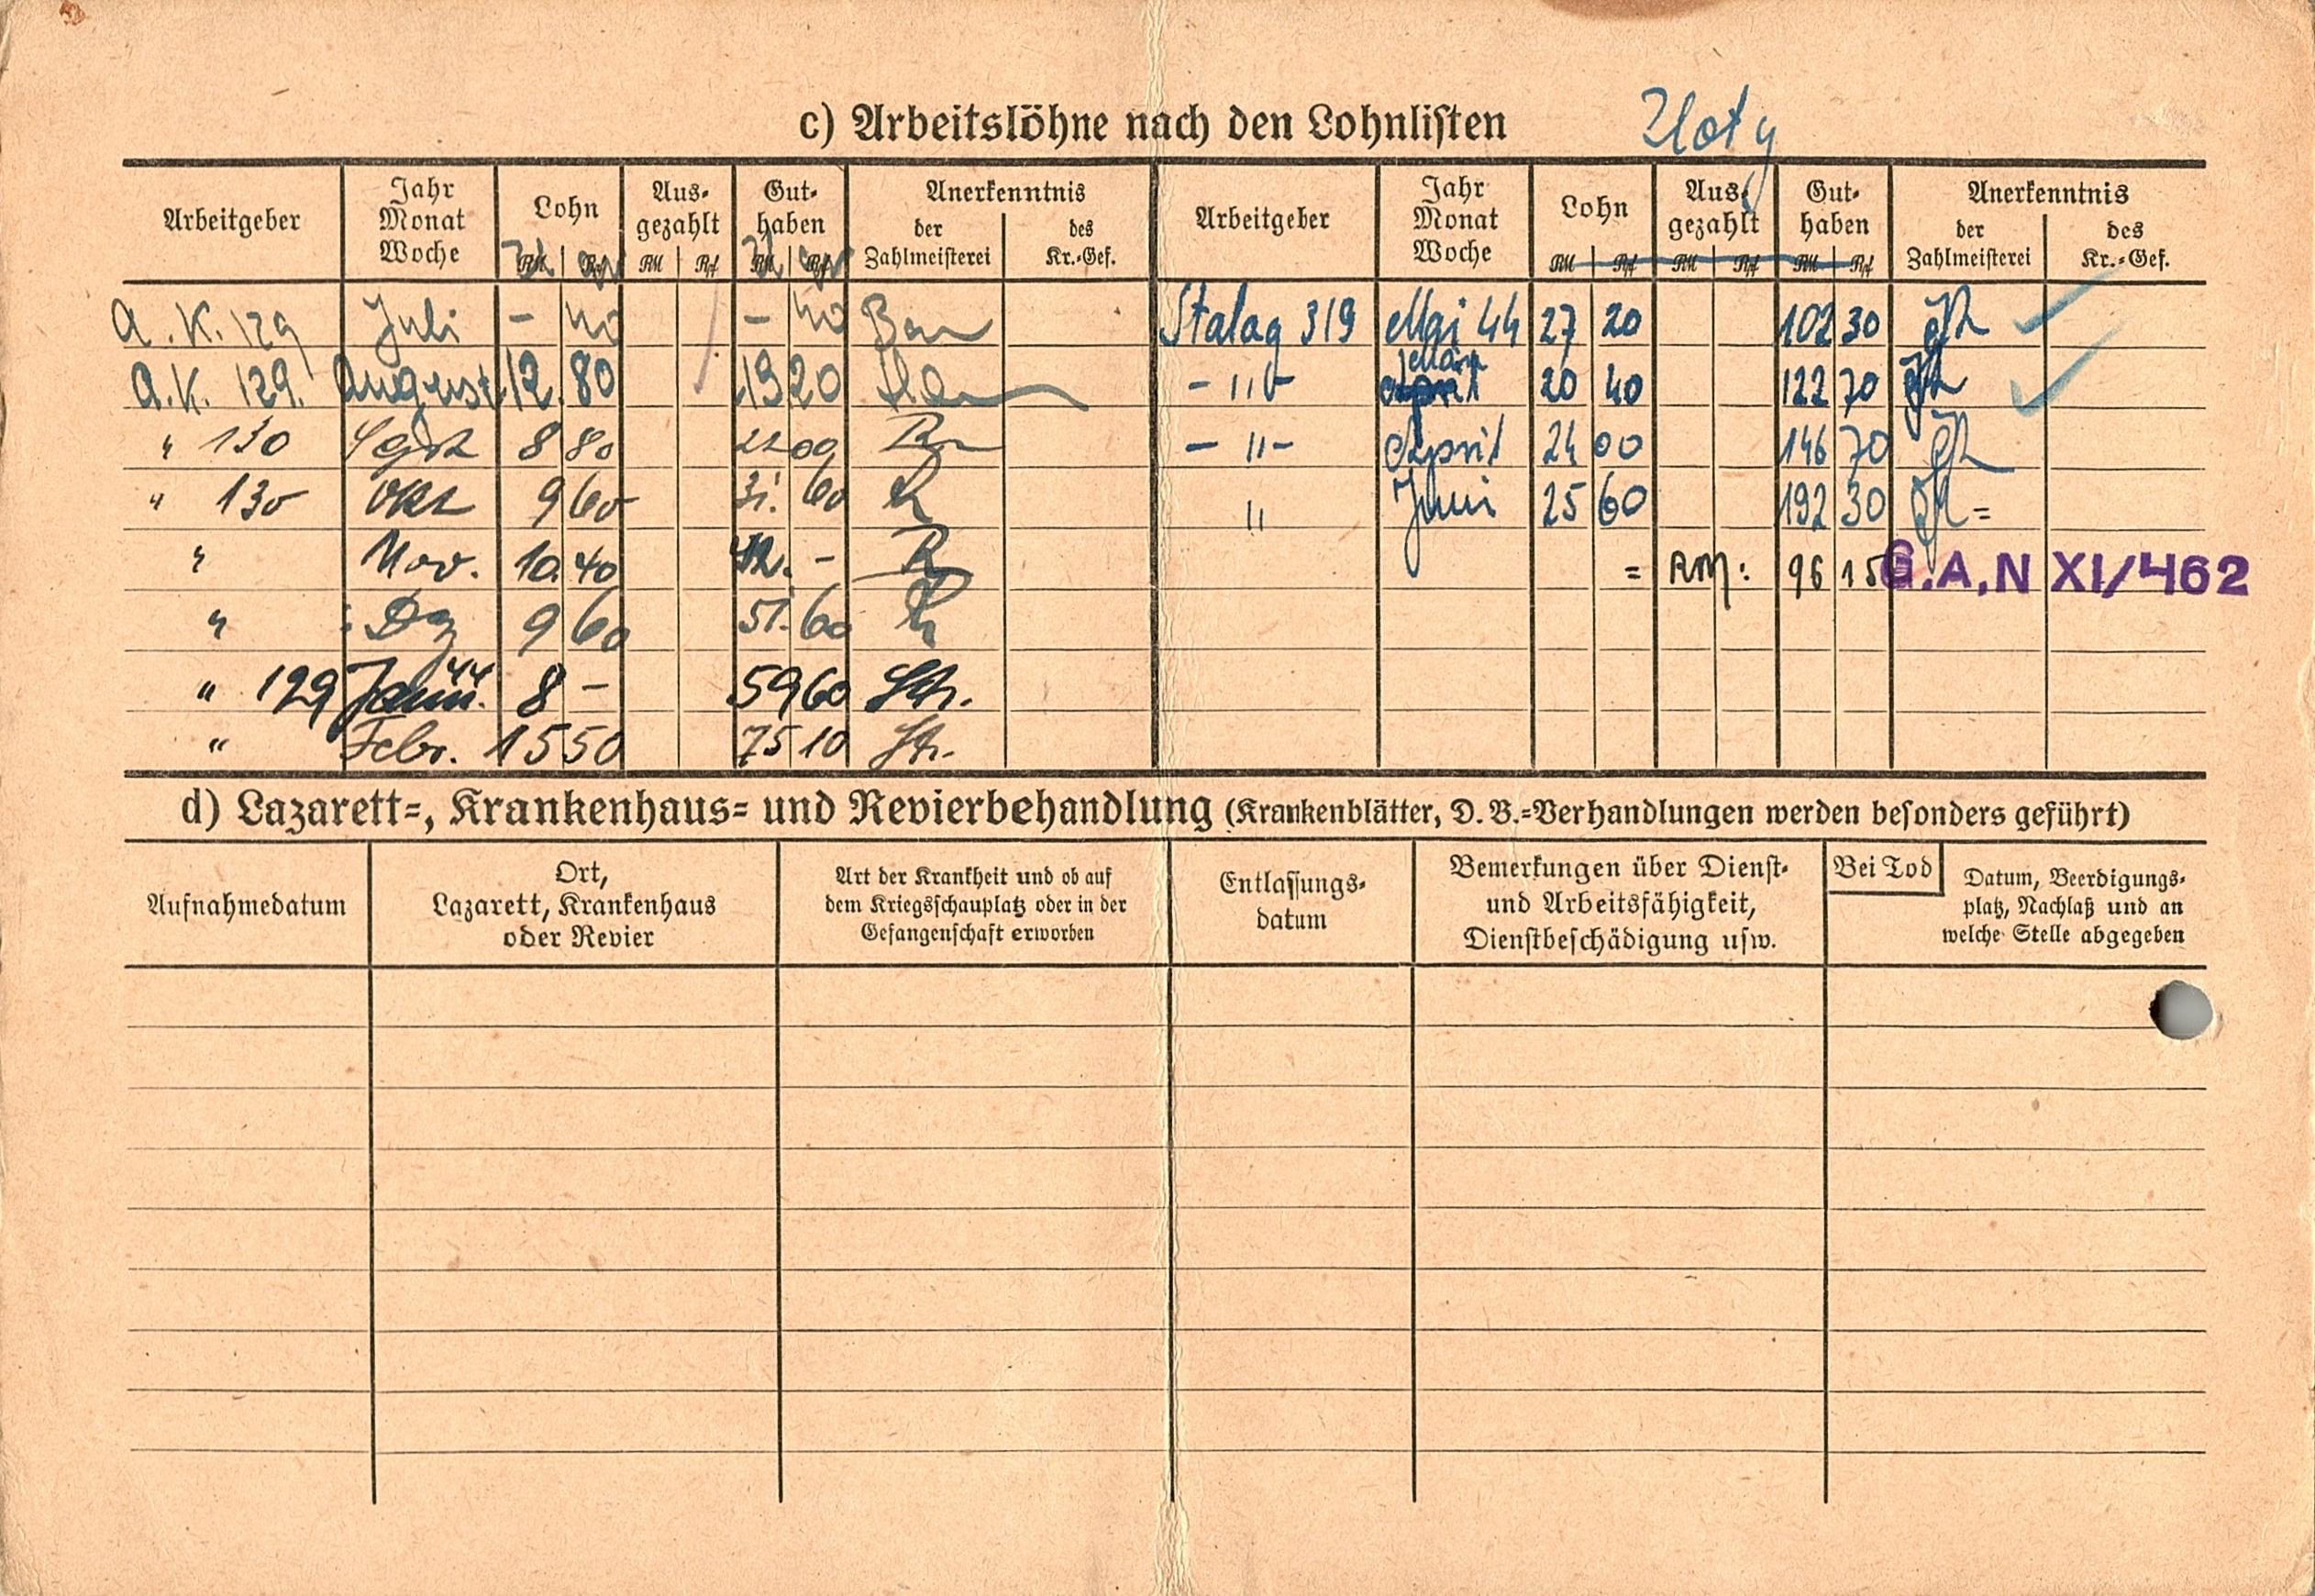 c) Arbeitslöhne nach den Lohnlisten Zloty
Arbeitgeber Jahr Monat Woche Lohn Aus-gezahlt Gut-haben Anerkenntnis der Zahlmeisterei des Kr.-Gef. Arbeitgeber Jahr Monat Woche Lohn Aus-gezahlt Gut-haben Anerkenntnis der Zahlmeisterei des Kr.-Gef.
RM Rpf RM Rpf RM Rpf RM Rpf RM Rpf RM Rpf
A. K. 129 Juli – 40 – 40 Stalag 319 Mai 44 27 20 102 30
A.K. 129. August 12. 80 13 20 – " – März 20 40 122 70
" 130 Sept 8 80 22 00 – " – April 24 00 146 70
" 130 Okt 9 60 31. 60 " Juni 25 60 192 30
" Nov. 10. 40 42. – = RM: 96 15 G.A,N XI/462
" Dez 9 60 51. 60
" 129 Jann. 44 8 – 59 60 Str.
" Febr. 15 50 75 10 Str.
d) Lazarett-, Krankenhaus- und Revierbehandlung (Krankenblätter, D. B.-Verhandlungen werden besonders geführt)
Aufnahmedatum
Ort,
Lazarett, Krankenhaus
oder Revier
Art der Krankheit und ob auf
dem Kriegsschauplatz oder in der
Gefangenschaft erworben
Entlassungs-
datum
Bemerkungen über Dienst-
und Arbeitsfähigkeit,
Dienstbeschädigung usw.
Bei Tod
Datum, Beerdigungs-
platz, Nachlaß und an
welche Stelle abgegeben